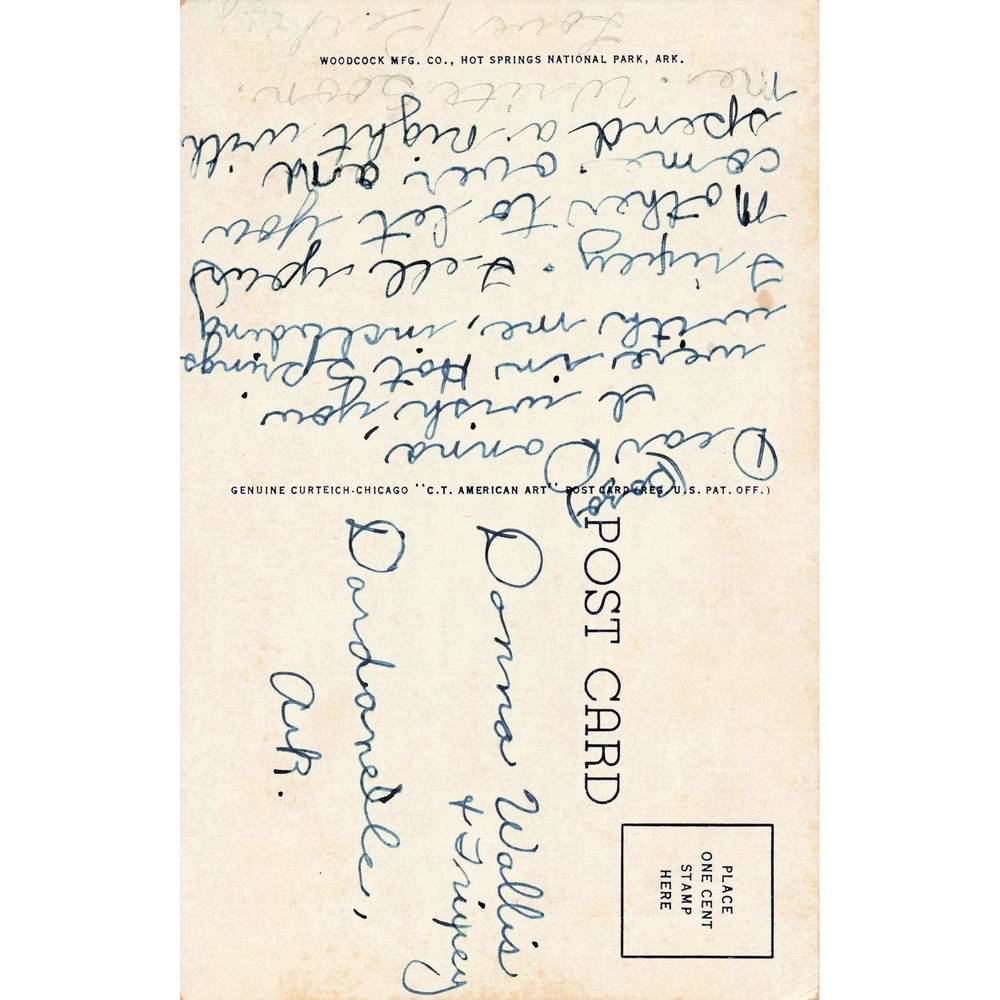 WOODCOCK MFG. CO., HOT SPRINGS NATIONAL PARK, ARK.
Dear Donna,
I wish you
were in Hot Springs
with me, including
Tripey. Tell your
Mother to let you
come over and
spend a night with
me. Write soon.
Love
GENUINE CURTEICH-CHICAGO "C.T. AMERICAN ART" POST CARD (REG. U.S. PAT. OFF.)
POST CARD
PLACE
ONE CENT
STAMP
HERE
Donna Wallis
& Tripey
Dardanelle,
Ark.